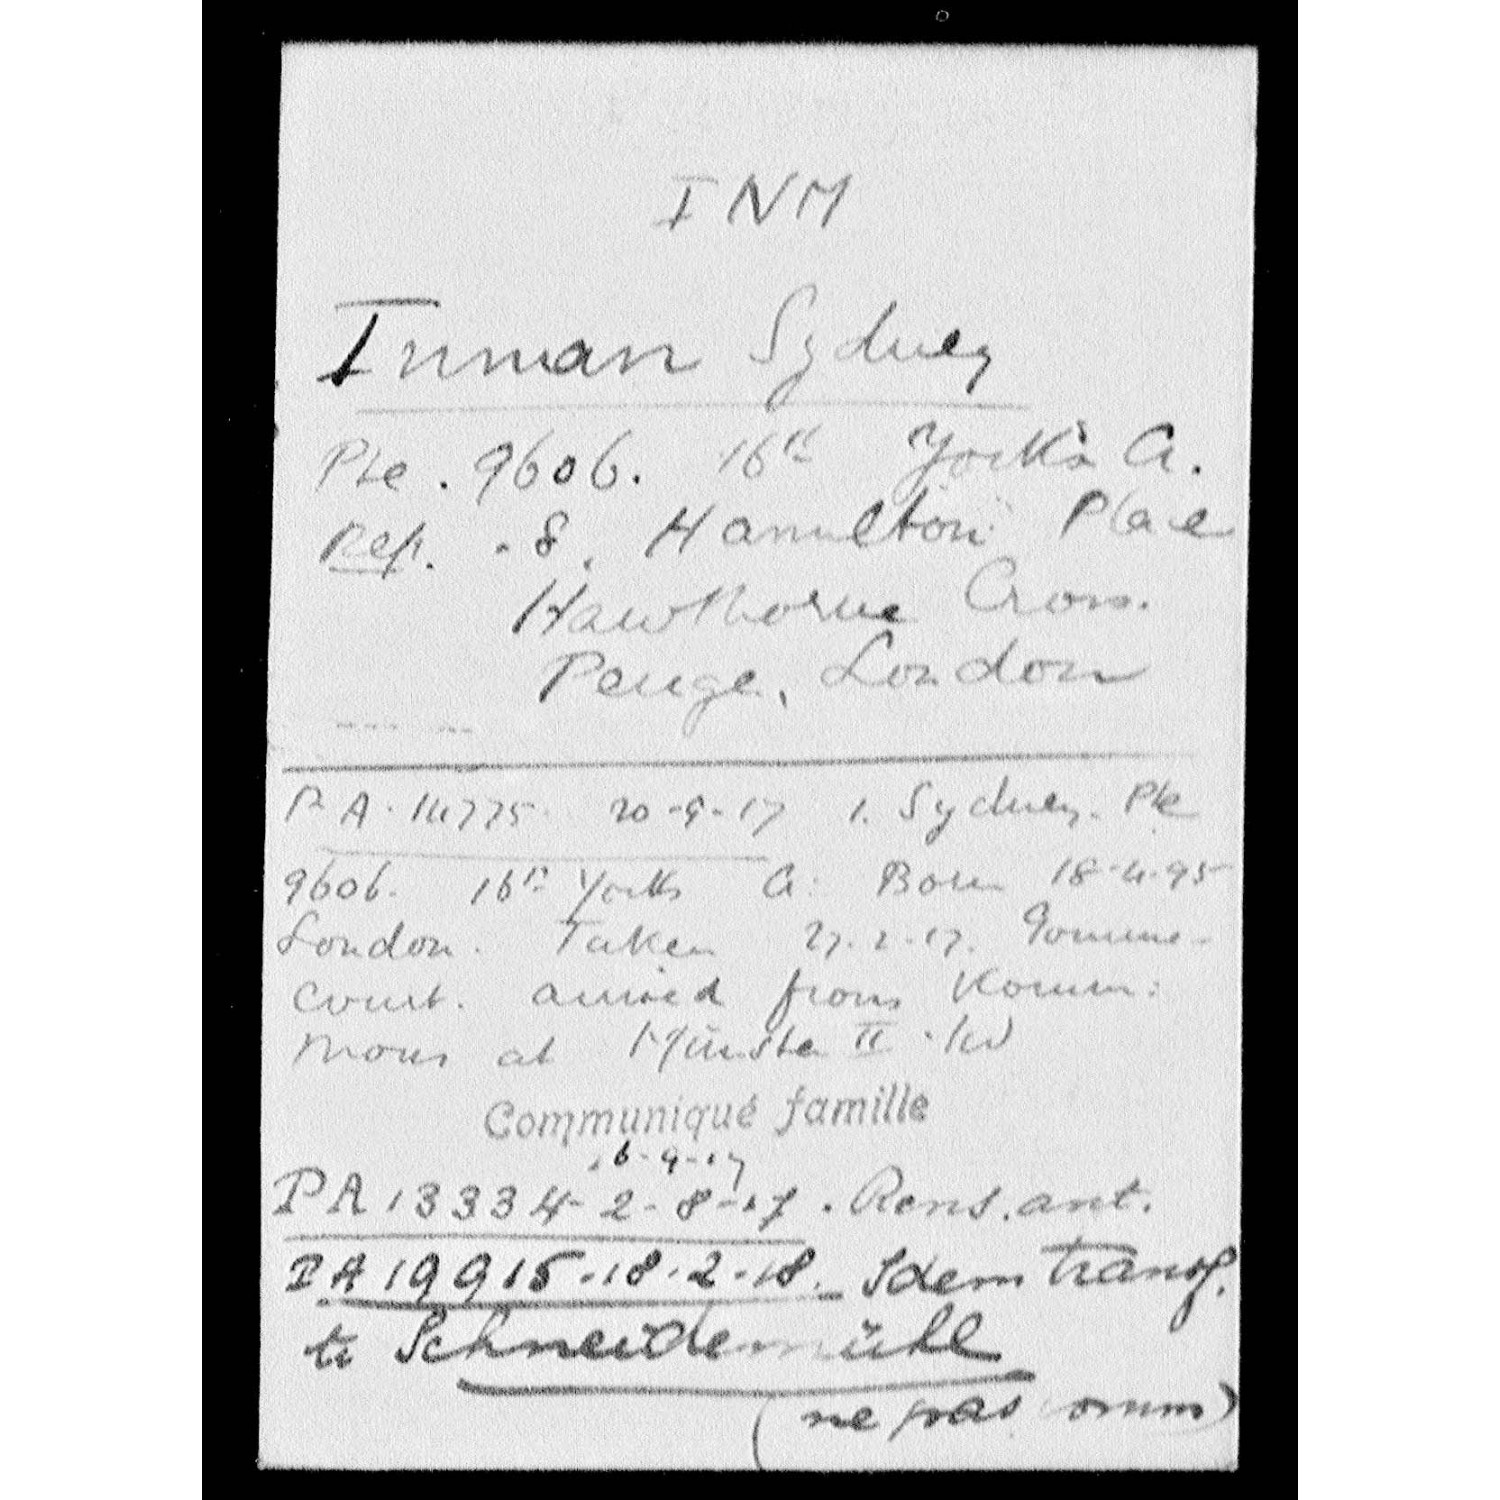 INM
Inman Sydney
Pte. 9606. 16th Yorks A.
Rep. - 8. Hamilton Place
Hawthorne Cross.
Penge, London
PA. 14775. 20-9-17 I. Sydney. Pte
9606. 16th Yorks A: Born 18-4-95
London. Taken 27.2.17. Gomme-
court. arrived from Komm:
Mons at Münster II
Communiqué famille
16-9-17
PA 13334-2-8-17. Rens. ant.
PA 19915-18-2-18. Idem transf.
to Schneidemühl
(ne pas comm)